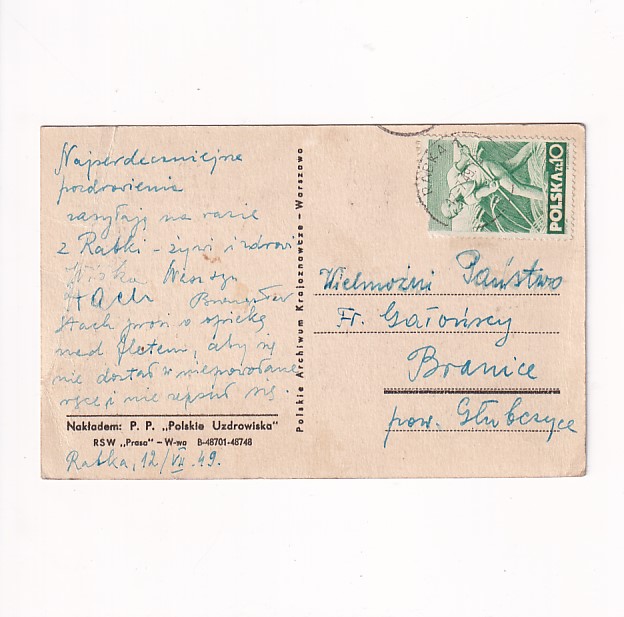 Najserdeczniejsze
pozdrowienia
zasyłają na razie
z Rabki – żywi i zdrowi
Wiska
Stach
Stach prosi o opiekę
nad fletem, aby się
nie dostał w niepowołane
ręce i nie zepsuł się.
Nakładem: P. P. „Polskie Uzdrowiska"
RSW „Prasa" – W-wa B-48701-48748
Rabka, 12/VII.49.
Polskie Archiwum Krajoznawcze – Warszawa
RABKA 1
POLSKA ZŁ 10
Wielmożni Państwo
Fr. Gałońscy
Branice
pow. Głubczyce